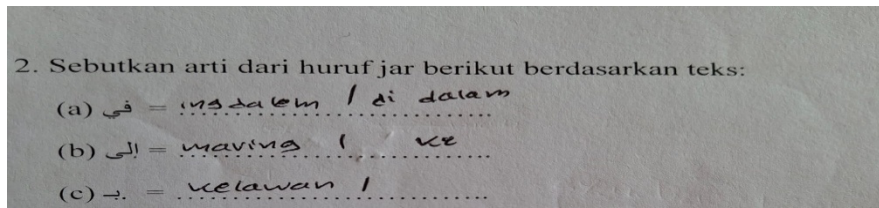 2. Sebutkan arti dari huruf jar berikut berdasarkan teks:
(a) في = ing dalem / di dalam
(b) إلى = maring / ke
(c) بـ = kelawan /